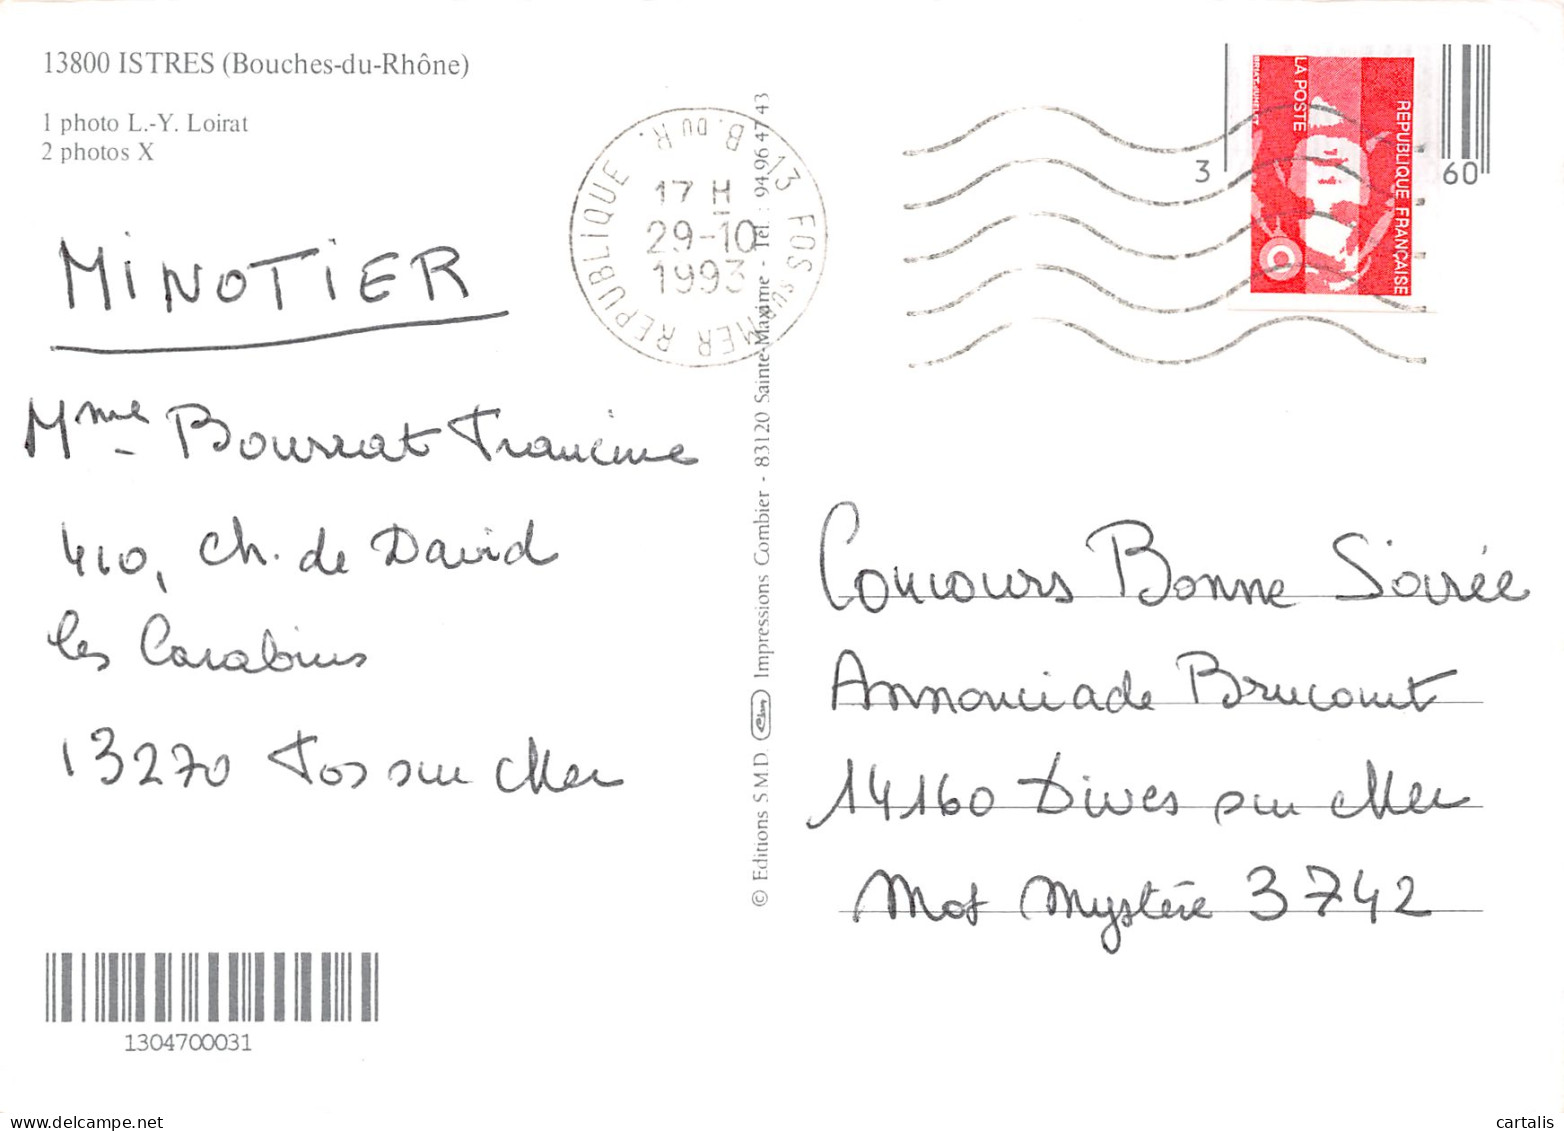 13800 ISTRES (Bouches-du-Rhône)
1 photo L.-Y. Loirat
2 photos X
MINOTIER
Mme Bourrat Francine
410, ch. de David
les Carabins
13270 Fos sur Mer
1304700031
© Editions S.M.D. Impressions Combier - 83120 Sainte-Maxime - Tél. : 94 96 47 43
13 FOS sur MER REPUBLIQUE B. DU R.
17 H
29-10
1993
3
60
LA POSTE
REPUBLIQUE FRANÇAISE
Concours Bonne Soirée
Annonciade Brucourt
14160 Dives sur Mer
Mot Mystère 3742
cartalis